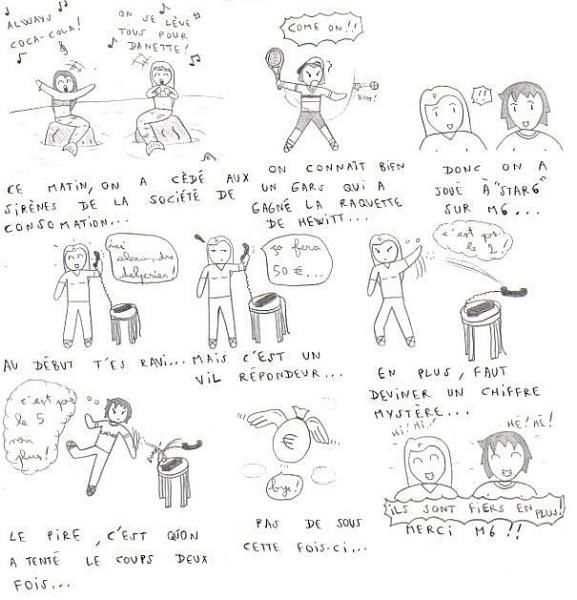 ALWAYS
COCA-COLA!
ON SE LÈVE
TOUS POUR
DANETTE!
CE MATIN, ON A CÉDÉ AUX
SIRÈNES DE LA SOCIÉTÉ DE
CONSOMATION...
COME ON!!
BOM!
ON CONNAÎT BIEN
UN GARS QUI A
GAGNÉ LA RAQUETTE
DE HEWITT...
!!
DONC ON A
JOUÉ À "STAR6"
SUR M6...
ici
alexandre
delperier!
AU DÉBUT T'ES RAVI...
ça fera
50 €...
MAIS C'EST UN
VIL RÉPONDEUR...
c'est pas
le 2!
EN PLUS, FAUT
DEVINER UN CHIFFRE
MYSTÈRE...
c'est pas
le 5
non
plus!
LE PIRE, C'EST QU'ON
A TENTÉ LE COUPS DEUX
FOIS...
€
bye!
PAS DE SOUS
CETTE FOIS-CI...
HI! HI!
HE! HÉ!
ILS SONT FIERS EN PLUS!
MERCI M6!!